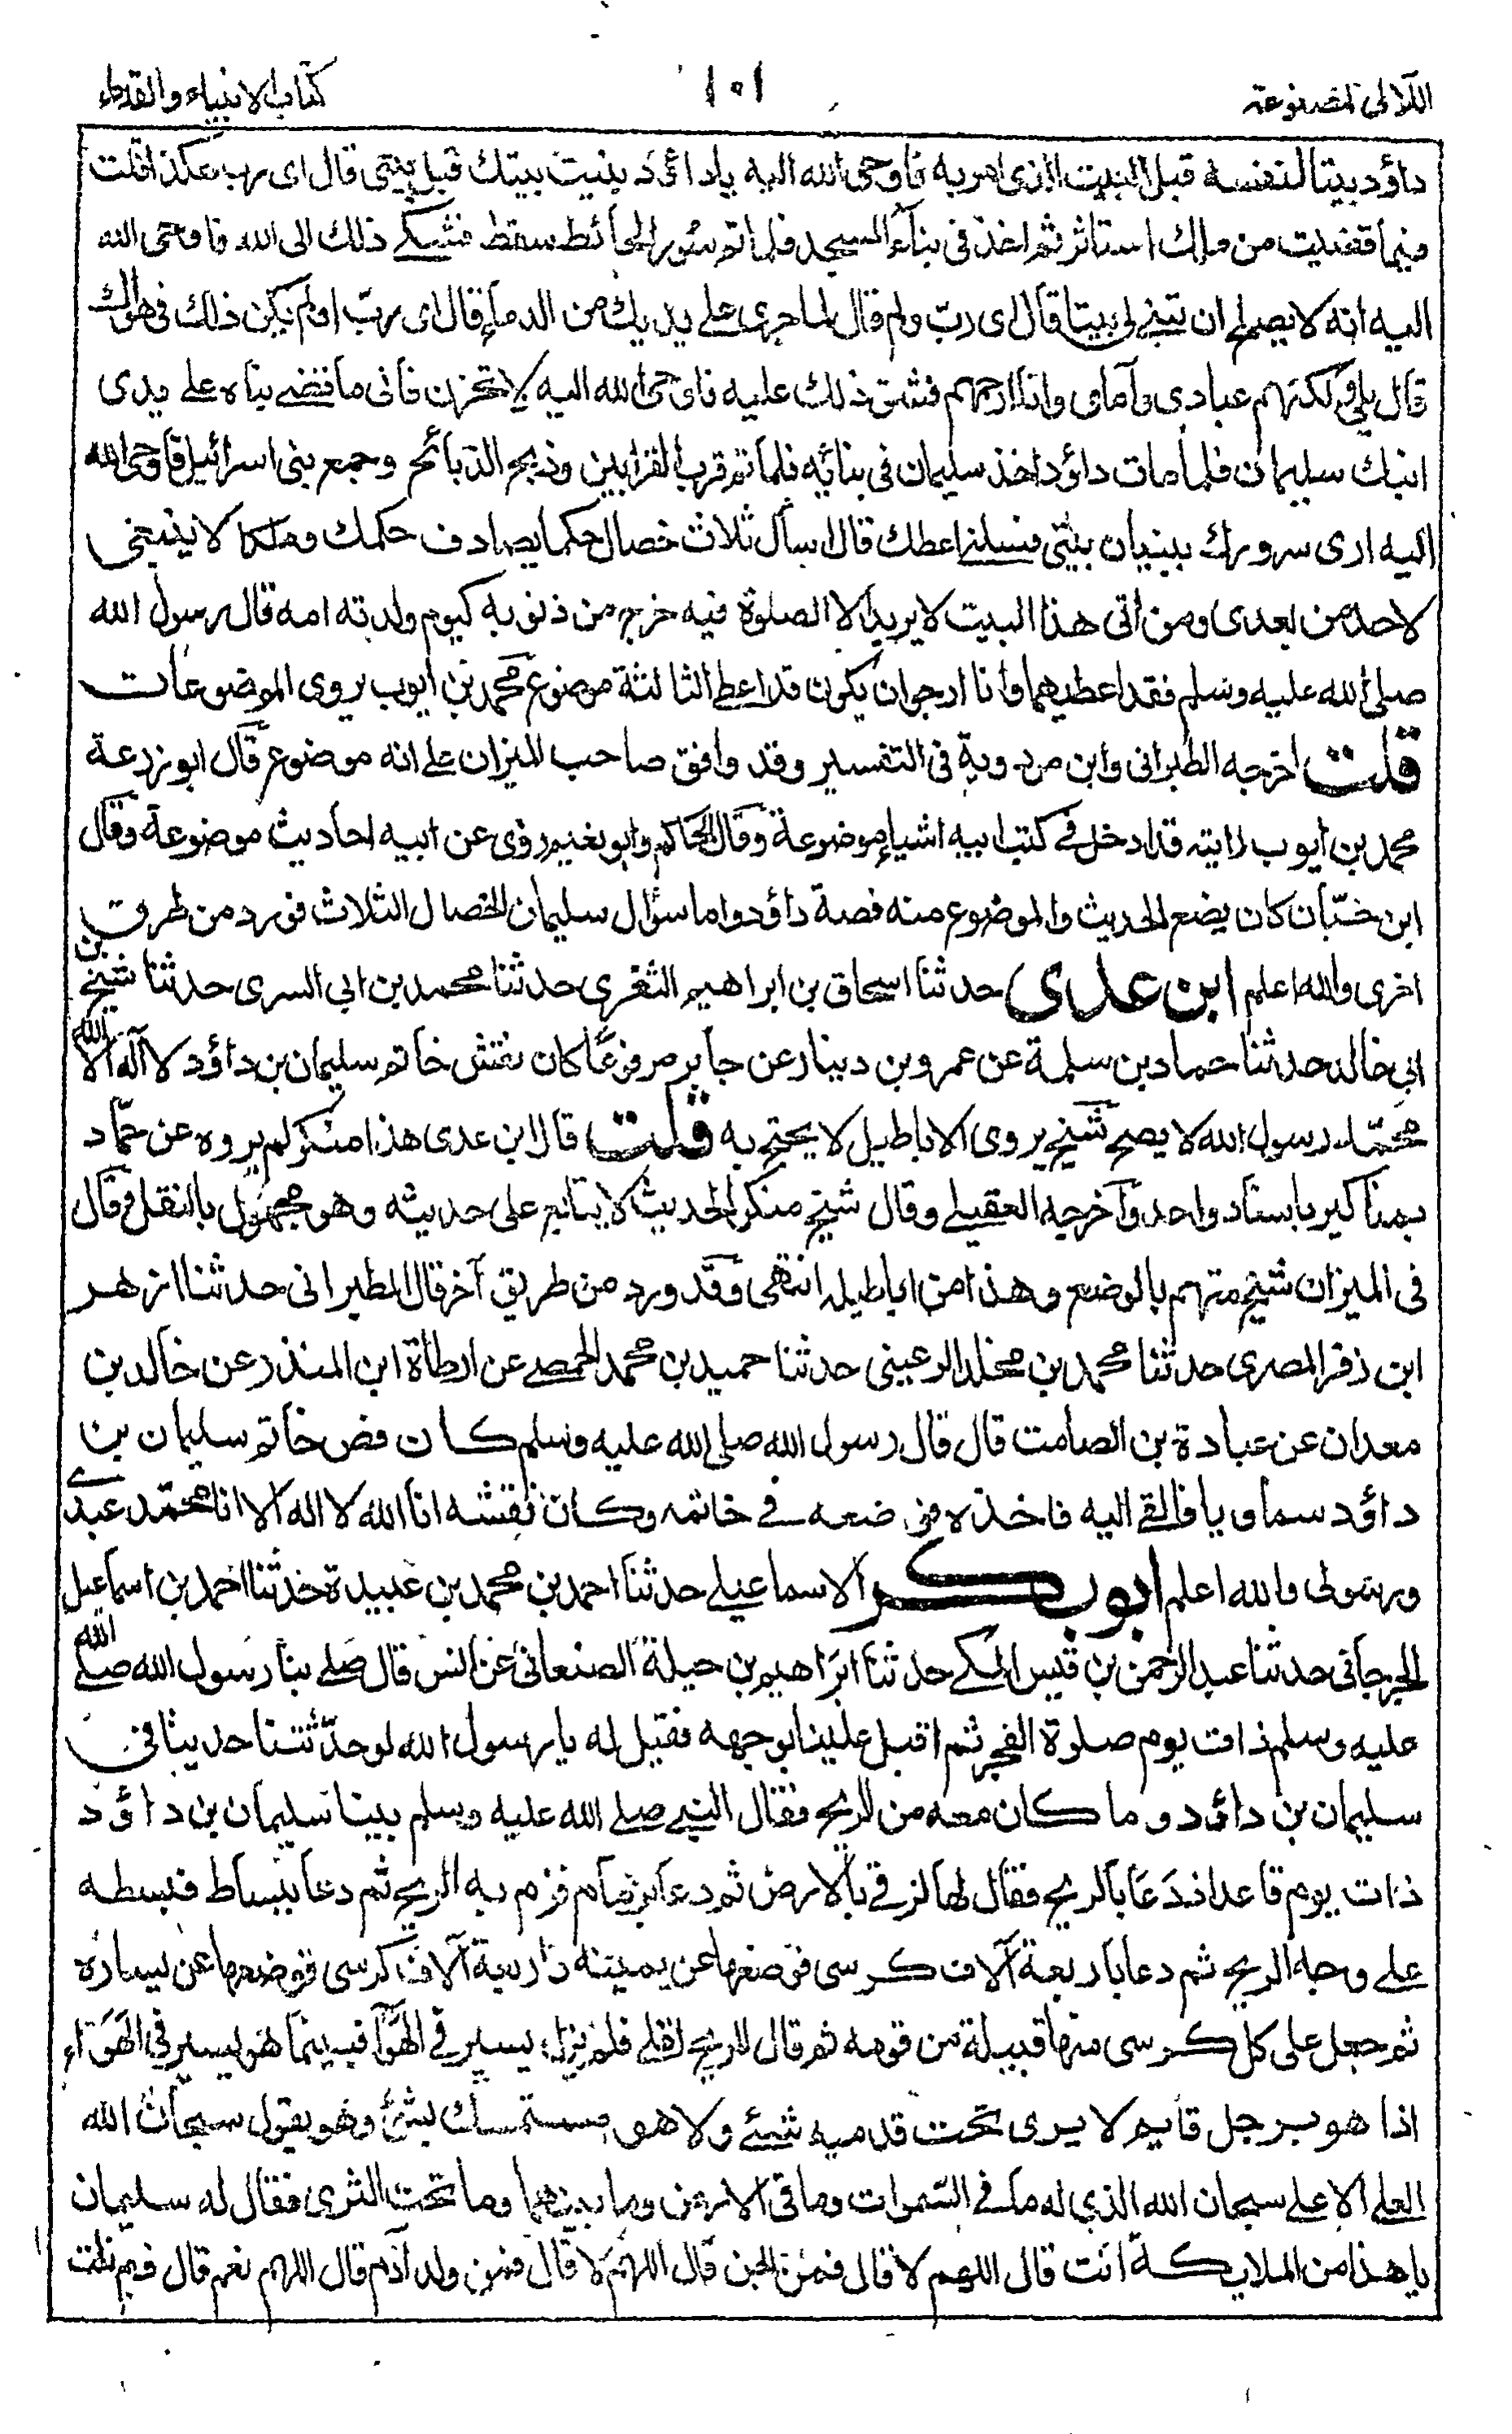 اللآلى المصنوعة
١٥١
كتاب الانبياء والقدماء
داؤد بيتا لنفسه قبل البيت الذى امر به فاوحى الله اليه ياداؤد بنيت بيتك قبل بيتى قال اى رب هكذا قلت
فيما قضيت من ملك استاثر ثم اخذ فى بناء المسجد فلما تم سور الحائط سقط فشكى ذلك الى الله فاوحى الله
اليه انه لا يصلح ان تبنى لى بيتا قال اى رب ولم قال لما جرى على يديك من الدماء قال اى رب اولم يكن ذلك فى هواك
قال بلى ولكنهم عبادى وآماى وانا ارحمهم فشق ذلك عليه فاوحى الله اليه لا تحزن فانى سأقضى بناه على يدى
ابنك سليمان فلما مات داؤد اخذ سليمان فى بنائه فلما تم قرب القرابين وذبح الذبائح وجمع بنى اسرائيل فاوحى الله
اليه ارى سرورك ببنيان بيتى فسلنى اعطك قال اسأل ثلاث خصال حكما يصادف حكمك وملكا لا ينبغى
لاحد من بعدى ومن اتى هذا البيت لا يريد الا الصلوة فيه خرج من ذنوبه كيوم ولدته امه قال رسول الله
صلى الله عليه وسلم فقد اعطيهما وانا ارجو ان يكون قد اعطى الثالثة موضوع محمد بن ايوب يروى الموضوعات
قلت اخرجه الطبرانى وابن مردوية فى التفسير وقد وافق صاحب الميزان على انه موضوع قال ابو زرعة
محمد بن ايوب رايته قد ادخل فى كتب ابيه اشياء موضوعة وقال الحاكم وابو نعيم روى عن ابيه احاديث موضوعة وقال
ابن حبان كان يضع الحديث والموضوع منه قصة داؤد واما سؤال سليمان الخصال الثلاث فورد من طرق
اخرى والله اعلم ابن عدى حدثنا اسحاق بن ابراهيم الثغرى حدثنا محمد بن ابى السرى حدثنا شيخ بن
ابى خالد حدثنا حماد بن سلمة عن عمرو بن دينار عن جابر مرفوعا كان نقش خاتم سليمان بن داؤد لا آله الا الله
محمد رسول الله لا يصح شيخ يروى الاباطيل لا يحتج به قلت قال ابن عدى هذا منكر لم يروه عن حماد
بمناكير باسناد واحد وآخرجه العقيلى وقال شيخ منكر الحديث لا يتابع على حديثه وهو مجهول بالنقل وقال
فى الميزان شيخ متهم بالوضع وهذا من اباطيله انتهى وقد ورد من طريق آخر قال الطبرانى حدثنا ازهر
ابن زفر المصرى حدثنا محمد بن مخلد الرعينى حدثنا حميد بن محمد الحمصى عن ارطاة ابن المنذر عن خالد بن
معدان عن عبادة بن الصامت قال قال رسول الله صلى الله عليه وسلم كان فص خاتم سليمان بن
داؤد سماويا فالقى اليه فاخذه فوضعه فى خاتمه وكان نقشه انا الله لا اله الا انا محمد عبدى
ورسولى والله اعلم ابو بكر الاسماعيلى حدثنا احمد بن محمد بن عبيدة حدثنا احمد بن اسماعيل
الجرجانى حدثنا عبد الرحمن بن قيس المكى حدثنا ابراهيم بن حيلة الصنعانى عن انس قال صلى بنا رسول الله صلى الله
عليه وسلم ذات يوم صلوة الفجر ثم اقبل علينا بوجهه فقيل له يا رسول الله لو حدثتنا حديثا فى
سليمان بن داؤد وما كان معه من الريح فقال النبى صلى الله عليه وسلم بينا سليمان بن داؤد
ذات يوم قاعد اذ دعا بالريح فقال لها الزقى بالارض ثم دعا بزمام فزم به الريح ثم دعا ببساط فبسطه
على وجه الريح ثم دعا باربعة آلاف كرسى فوضعها عن يمينه واربعة آلاف كرسى فوضعها عن يساره
ثم جعل على كل كرسى منها قبيلة من قومه ثم قال للريح اقلى فلم يزل يسير فى الهوآ فبينما هو يسير فى الهواء
اذا هو برجل قايم لا يرى تحت قدميه شيئ ولا هو مستمسك بشئ وهو يقول سبحان الله
العلى الاعلى سبحان الله الذى له ما فى السموات وما فى الارض وما بينهما وما تحت الثرى فقال له سليمان
يا هذا من الملايكة انت قال اللهم لا قال فمن الجن قال اللهم لا قال فمن ولد آدم قال اللهم نعم قال فبم نلت